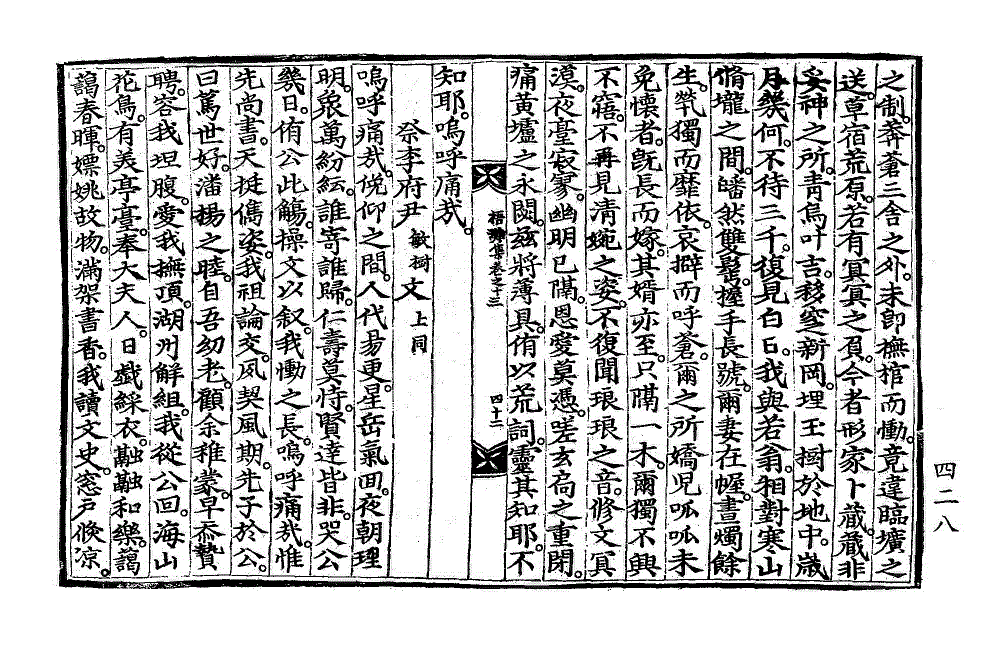 之制莽蒼三舍之外未卽撫棺而慟竟違臨壙之
送草宿荒原若有冥冥之負今者形家卜葴葴非
妥神之所靑烏叶吉移窆新岡埋玉樹於地中歲
月幾何不待三千復見白日我與若翁相對寒山
脩壠之間皤然雙鬢握手長號爾妻在幄晝燭餘
生煢獨而靡依哀擗而呼蒼爾之所嬌兒呱呱未
免懷者旣長而嫁其婿亦至只隔一木爾獨不興
不寤不再見淸婉之姿不復聞琅琅之音修文冥
漠夜臺寂寥幽明已隔恩愛莫憑嗟亥扃之重閉
痛黃壚之永閟玆將薄具侑以荒詞靈其知耶不
知耶嗚呼痛哉
祭李府尹敏樹文上同
嗚呼痛哉俛仰之間人代易更星岳氣回夜朝理
明衆萬紛紜誰寄誰歸仁壽莫恃賢達皆非哭公
幾日侑公此觴操文以叙我慟之長嗚呼痛哉惟
先尙書天挺儁姿我祖論交夙契風期先子於公
曰篤世好潘楊之睦自吾幼老顧余稚蒙早忝贄
聘容我坦腹愛我撫頂湖州解組我從公回海山
花鳥有美亭臺奉大夫人日戱綵衣融融和樂藹
藹春暉嫖姚故物滿架書香我讀文史窓戶倏凉
集卷之十三
四十二
四二八